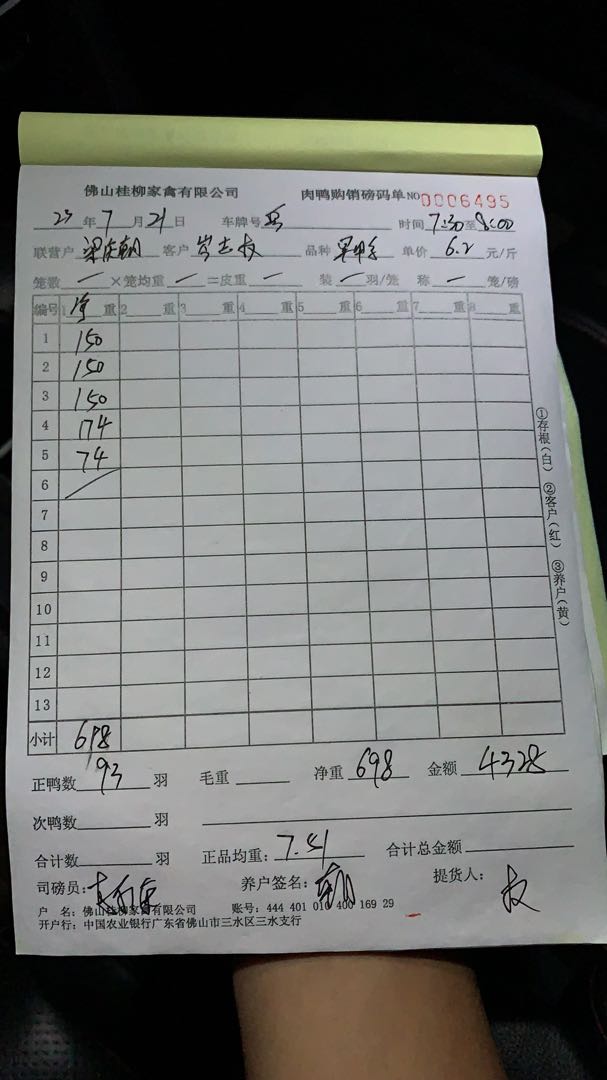 佛山桂柳家禽有限公司 肉鸭购销磅码单 NO 0006495
23年7月21日 车牌号 时间 7:30至8:00
联营户 客户 岑志权 品种 单价 6.2 元/斤
笼数 — ×笼均重 — =皮重 — 装 — 羽/笼 称 — 笼/磅
编号 1净重 2 重 3 重 4 重 5 重 6 重 7 重 8 重
1 150
2 150
3 150
4 174
5 74
6
7
8
9
10
11
12
13
小计 698
正鸭数 93 羽 毛重 净重 698 金额 4328
次鸭数 羽
合计数 羽 正品均重: 7.51 合计总金额
司磅员: 养户签名: 提货人: 权
户 名: 佛山桂柳家禽有限公司 账号: 444 401 010 400 169 29
开户行: 中国农业银行广东省佛山市三水区三水支行
①存根(白) ②客户(红) ③养户(黄)